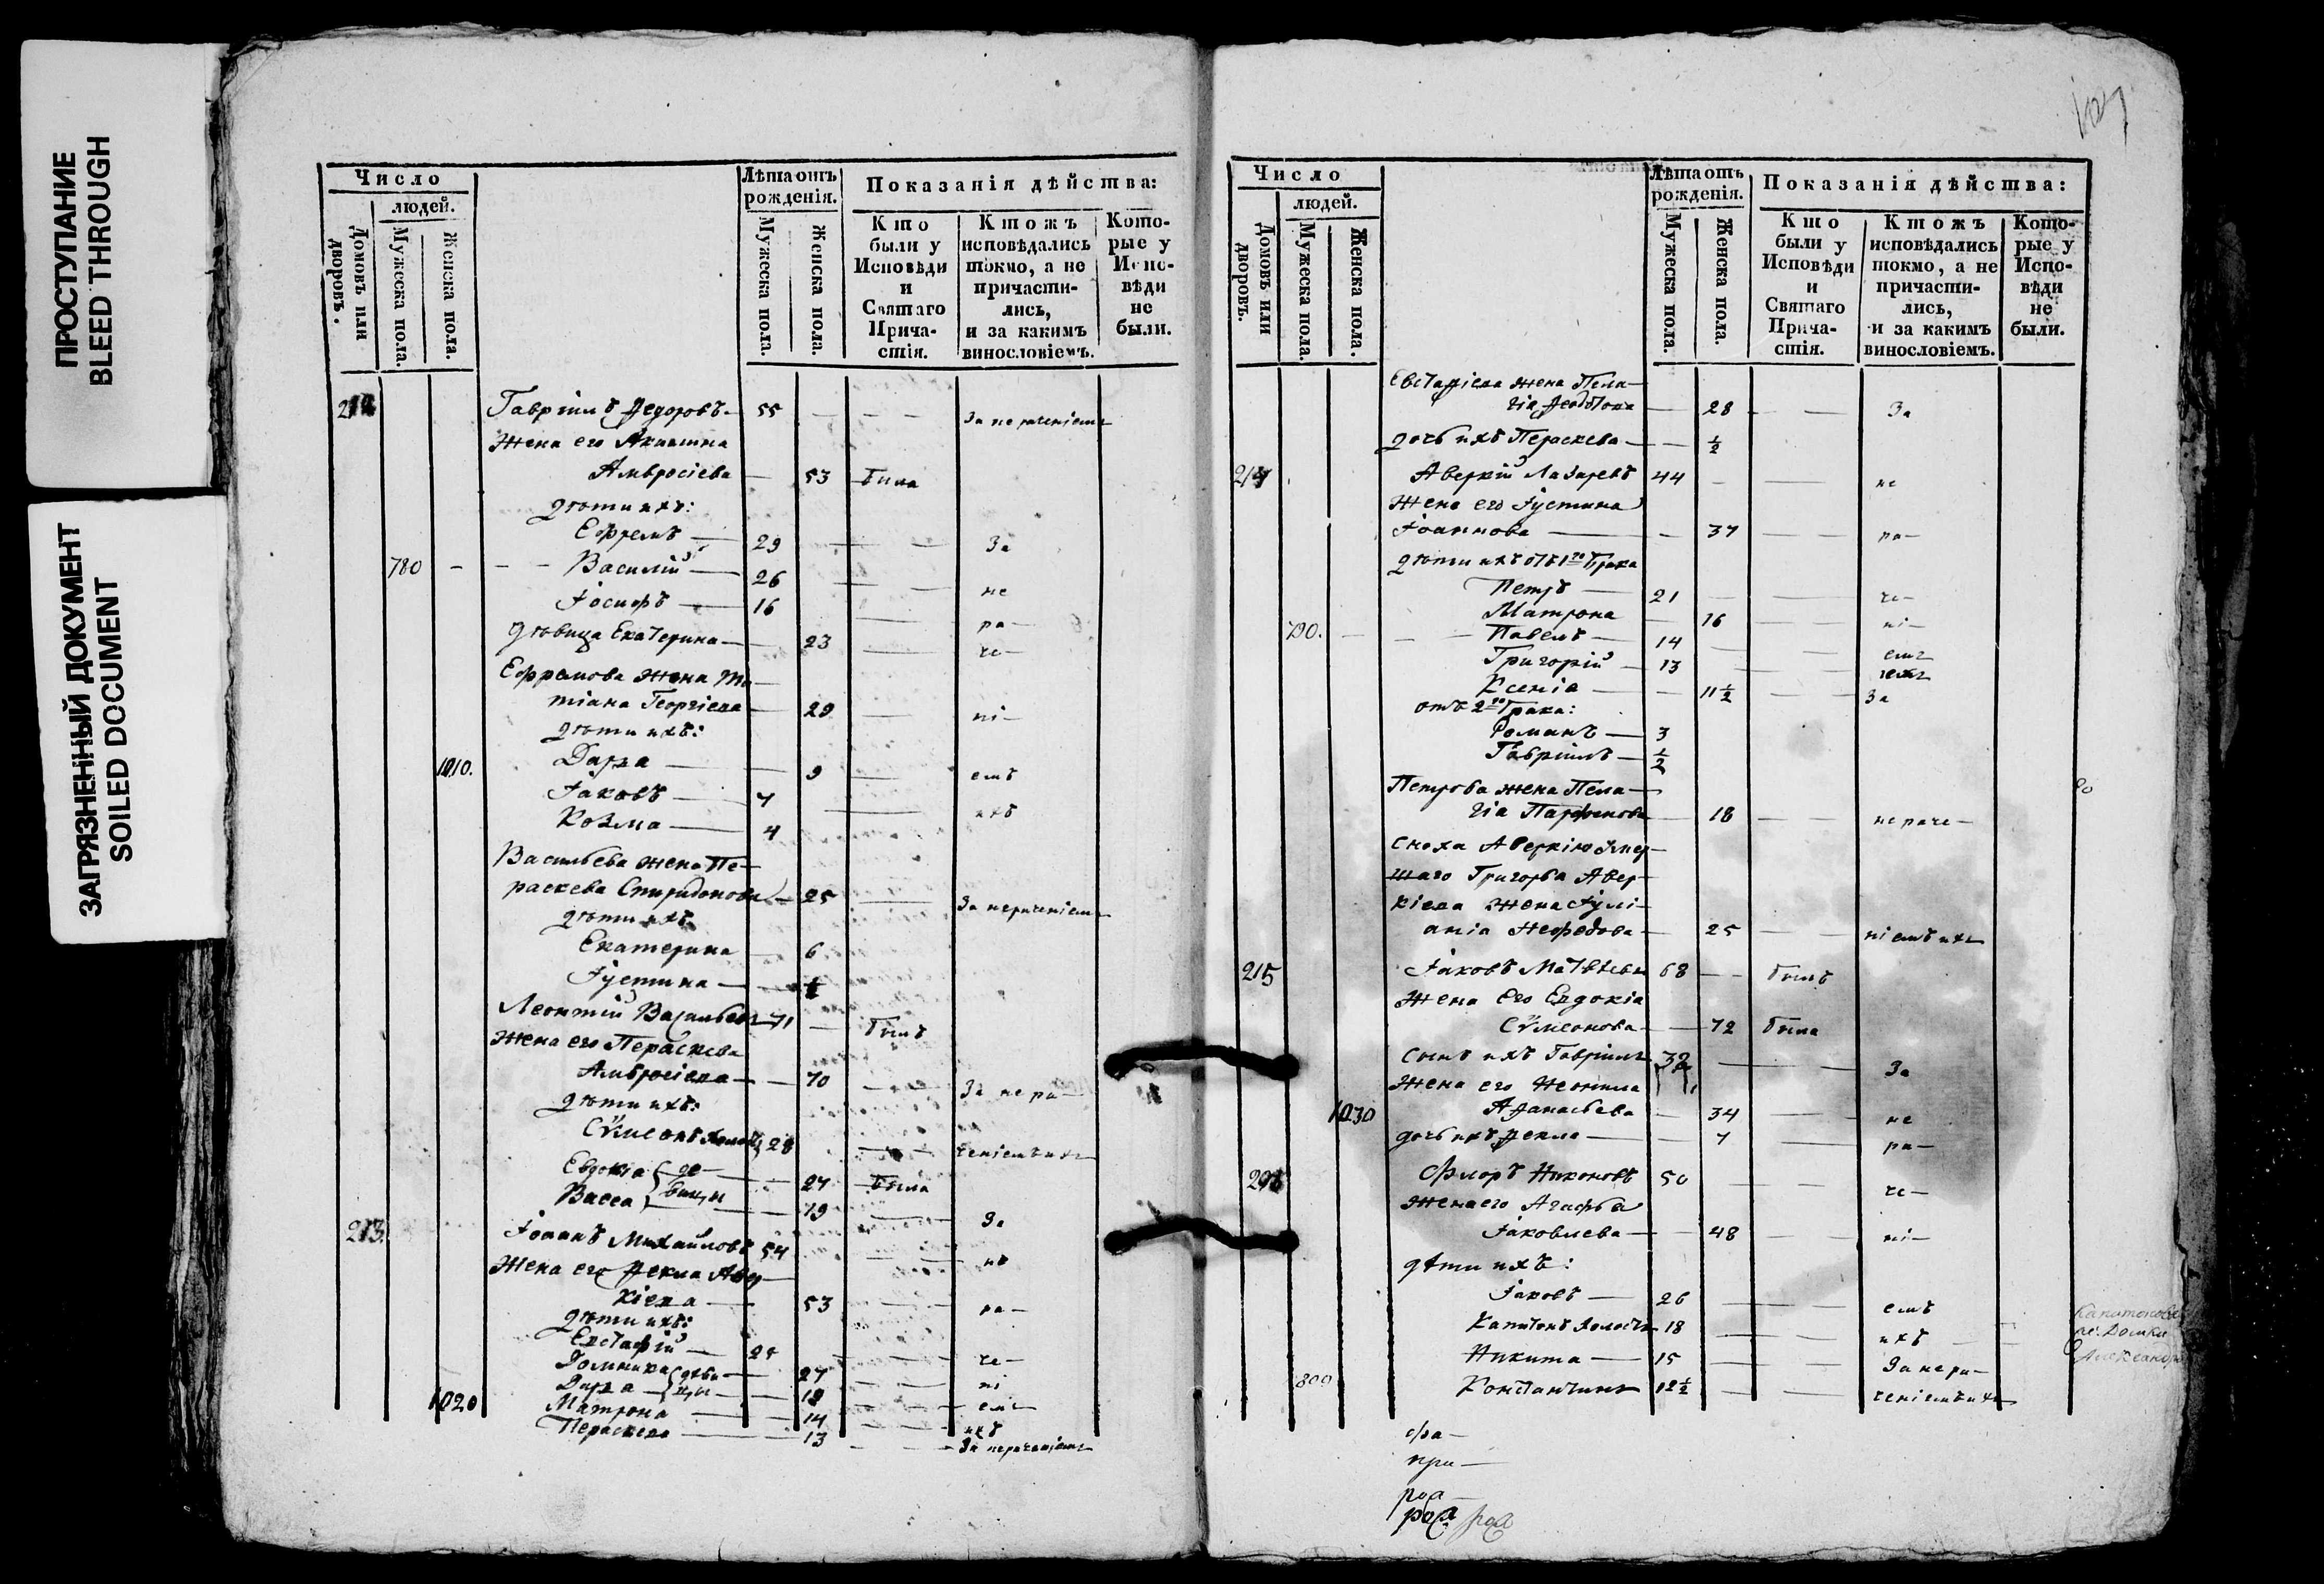 ПРОСТУПАНИЕ
BLEED THROUGH
ЗАГРЯЗНЕННЫЙ ДОКУМЕНТ
SOILED DOCUMENT
Число
людей.
Домовъ или дворовъ.
Мужеска пола.
Женска пола.
Лѣта отъ рожденія.
Мужеска пола.
Женска пола.
Показанія дѣйства:
Кто были у Исповѣди и Святаго Причастія.
Ктожъ исповѣдались токмо, а не причастились, и за какимъ винословіемъ.
Которые у Исповѣди не были.
212 Гавріилъ Ѳедоровъ 55 За нераченіемъ
Жена его Акилина
Амвросіева 53 была
дѣти ихъ:
Ефремъ 29 За
780 Василій 26 не
Іосифъ 16 ра-
дѣвица Екатерина 23 че-
Ефремова жена Та-
тіана Георгіева 29 ні-
дѣти ихъ:
1010. Дарья 9 емъ
Іаковъ 7 ихъ
Козма 4
Васильева жена Пе-
раскева Спиридонова 25 За нераченіемъ
дѣти ихъ
Екатерина 6
Іустина
Леонтій Васильевъ 71 былъ
Жена его Пераскева
Амвросіева 70 За нера-
дѣти ихъ:
Сѷмеонъ холостъ 28 ченіемъ ихъ
Евдокіа 27 была
Васса 19 За
213. Іоаннъ Михайловъ 54 не
Жена его Ѳекла Авер-
кіева 53 ра-
дѣти ихъ:
Евстафій 25 че-
Домника 27 ні
Дарья 18 емъ
1020 Матрона 14 ихъ
Пераскева 13 За нераченіемъ
127
Число
людей.
Домовъ или дворовъ.
Мужеска пола.
Женска пола.
Лѣта отъ рожденія.
Мужеска пола.
Женска пола.
Показанія дѣйства:
Кто были у Исповѣди и Святаго Причастія.
Ктожъ исповѣдались токмо, а не причастились, и за какимъ винословіемъ.
Которые у Исповѣди не были.
Евстафіева жена Пела-
гіа 28 За
дочь ихъ Пераскева ½
214 Аверкій Лазаревъ 44 не
Жена его Іустина
Іоаннова 37 ра-
дѣти ихъ отъ 1го брака
Петръ 21 че-
Матрона 16 ні-
790. Павелъ 14 емъ
Григорій 13 ихъ
Ксеніа 11½ За
отъ 2го брака:
Романъ 3
Гавріилъ ½
Петрова жена Пела-
гіа Парфенова 18 нераче-
Сноха Аверкію умер-
шаго Григорья Авер-
кіева жена Іулі-
аніа Нефедова 25 ніемъ ихъ
215 Іаковъ Матвѣевъ 68 былъ
Жена его Евдокіа
Сѷмеонова 72 была
сынъ ихъ Гавріилъ 32 За
Жена его Неонила
1030 Афанасьева 34 не
дочь ихъ Ѳекла 7 ра-
216 Флоръ Никоновъ 50 че-
Жена его Агафья
Іаковлева 48 ні-
дѣти ихъ:
Іаковъ 26 емъ
Капитонъ холостъ 18 ихъ
Никита 15 За нера-
800 Константинъ 12½ ченіемъ ихъ
фа-
при-